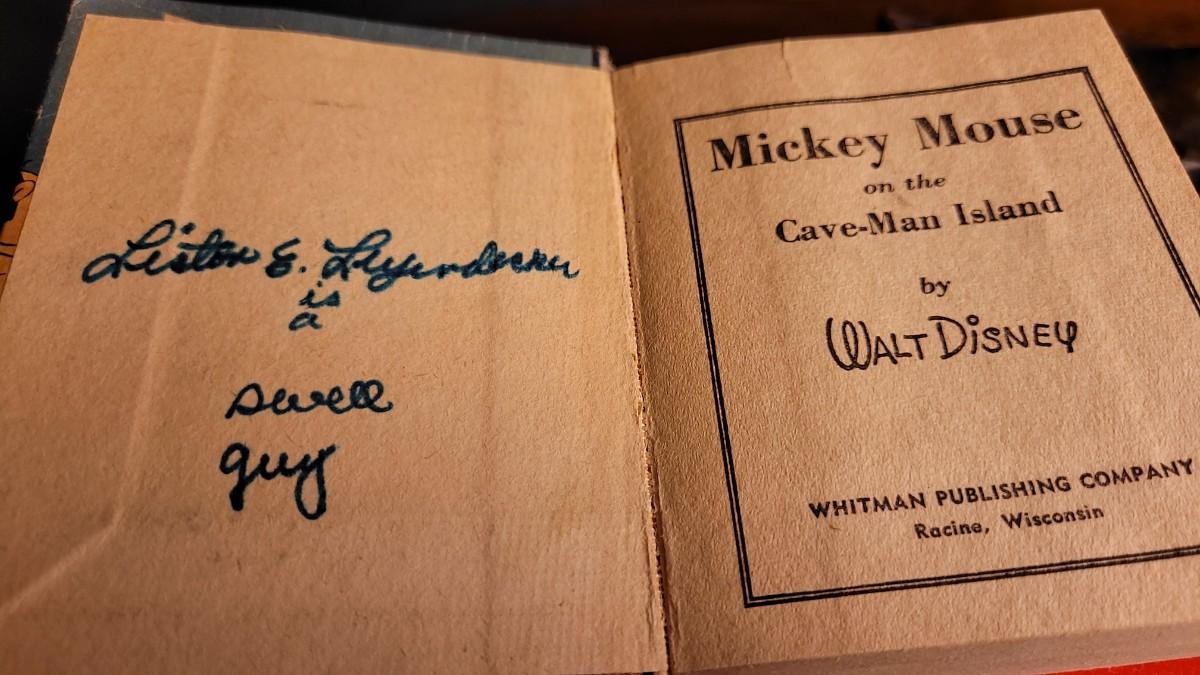 Liston E. Leyendecker
is
a
swell
guy
Mickey Mouse
on the
Cave-Man Island
by
WALT DISNEY
WHITMAN PUBLISHING COMPANY
Racine, Wisconsin